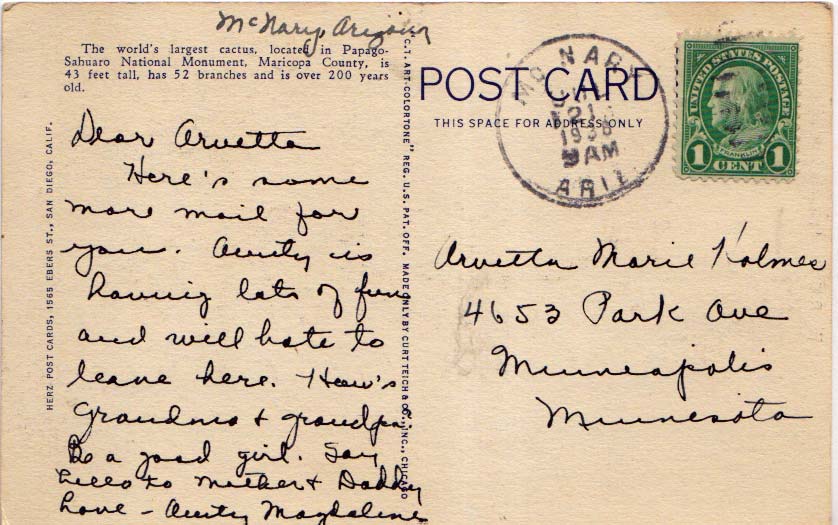 McNary, Arizona
The world's largest cactus, located in Papago-
Sahuaro National Monument, Maricopa County, is
43 feet tall, has 52 branches and is over 200 years
old.
Dear Arvetta
Here's some
more mail for
you. Aunty is
having lots of fun
and will hate to
leave here. How's
Grandma + grandpa
Be a good girl. Say
hello to Mother + Daddy
Love - Aunty Magdaline
HERZ POST CARDS, 1565 EBERS ST., SAN DIEGO, CALIF.
C.T. ART-COLORTONE" REG. U.S. PAT. OFF. MADE ONLY BY CURT TEICH & CO., INC., CHICAGO
POST CARD
THIS SPACE FOR ADDRESS ONLY
MC NARY
21
1938
AM
ARIZ.
UNITED STATES POSTAGE
FRANKLIN
1 CENT 1
Arvetta Marie Holmes
4653 Park Ave
Minneapolis
Minnesota